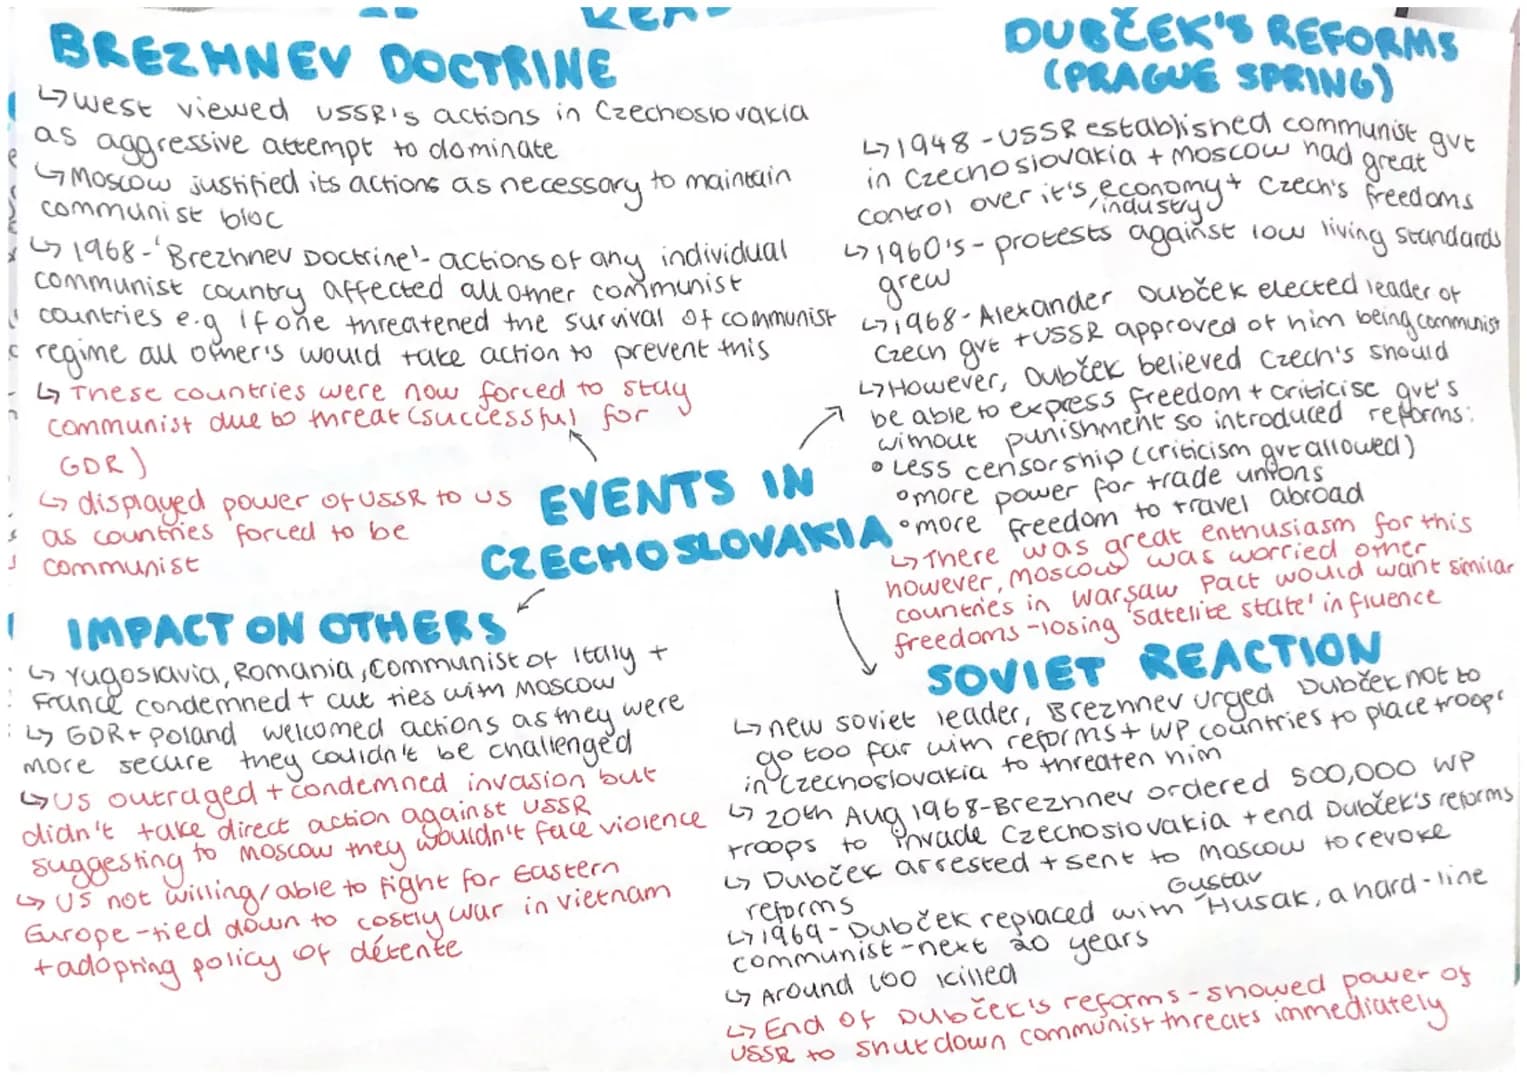 BREZHNEV DOCTRINE
↳ West viewed USSR's actions in Czechoslovakia
as aggressive attempt to dominate
↳ Moscow justified its actions as necessary to maintain
communist bloc
↳ 1968 - 'Brezhnev Doctrine' - actions of any individual
communist country affected all other communist
countries e.g if one threatened the survival of communist
regime all other's would take action to prevent this
↳ These countries were now forced to stay
communist due to threat (successful for
GDR)
↳ displayed power of USSR to US
as countries forced to be
communist
DUBČEK'S REFORMS
(PRAGUE SPRING)
↳ 1948 - USSR established communist gvt
in Czechoslovakia + Moscow had great
control over it's, economy + Czech's freedoms
/industry
↳ 1960's - protests against low living standards
grew
↳ 1968 - Alexander Dubček elected leader of
Czech gvt + USSR approved of him being communist
↳ However, Dubček believed Czech's should
be able to express freedom + criticise gvt's
without punishment so introduced reforms:
• Less censorship (criticism gvt allowed)
• more power for trade unions
• more freedom to travel abroad
↳ There was great enthusiasm for this
however, Moscow was worried other
countries in Warsaw Pact would want similar
freedoms - losing 'satelite state' influence
EVENTS IN
CZECHOSLOVAKIA
IMPACT ON OTHERS
↳ Yugoslavia, Romania, Communist of Italy +
France condemned + cut ties with Moscow
↳ GDR + Poland welcomed actions as they were
more secure they couldn't be challenged
↳ US outraged + condemned invasion but
didn't take direct action against USSR
suggesting to Moscow they wouldn't face violence
↳ US not willing/able to fight for Eastern
Europe - tied down to costly war in Vietnam
+ adopting policy of détente
SOVIET REACTION
↳ new soviet leader, Brezhnev urged Dubček not to
go too far with reforms + WP countries to place troops
in Czechoslovakia to threaten him
↳ 20th Aug 1968 - Brezhnev ordered 500,000 WP
troops to invade Czechoslovakia + end Dubček's reforms
↳ Dubček arrested + sent to Moscow to revoke
reforms
Gustav
↳ 1969 - Dubček replaced with Husak, a hard-line
communist - next 20 years
↳ Around 100 killed
↳ End of Dubček's reforms - showed power of
USSR to shut down communist threats immediately